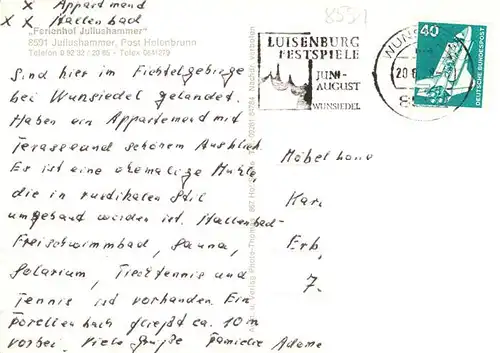 X Appartment
X X Hallenbad
"Ferienhof Juliushammer"
8591 Juliushammer, Post Holenbrunn
Telefon 0 92 32 / 20 65 - Telex 0641279
Sind hier im Fichtelgebirge
bei Wunsiedel gelandet.
Haben ein Appartemend mit
Terasse und schönem Ausblick.
Es ist eine ehemalige Mühle,
die in rustikalen Stil
umgebaut worden ist. Hallenbad-
Freischwimmbad, Sauna,
Solarium, Tischtennis und
Tennis ist vorhanden. Ein
Forellenbach fließt ca. 10 m
vorbei. Viele Grüße Familie Adame
8591
LUISENBURG
FESTSPIELE
JUNI-
AUGUST
WUNSIEDEL
WUNS
20.
40
DEUTSCHE BUNDESPOST
Möbel
Karl
Erb,
7